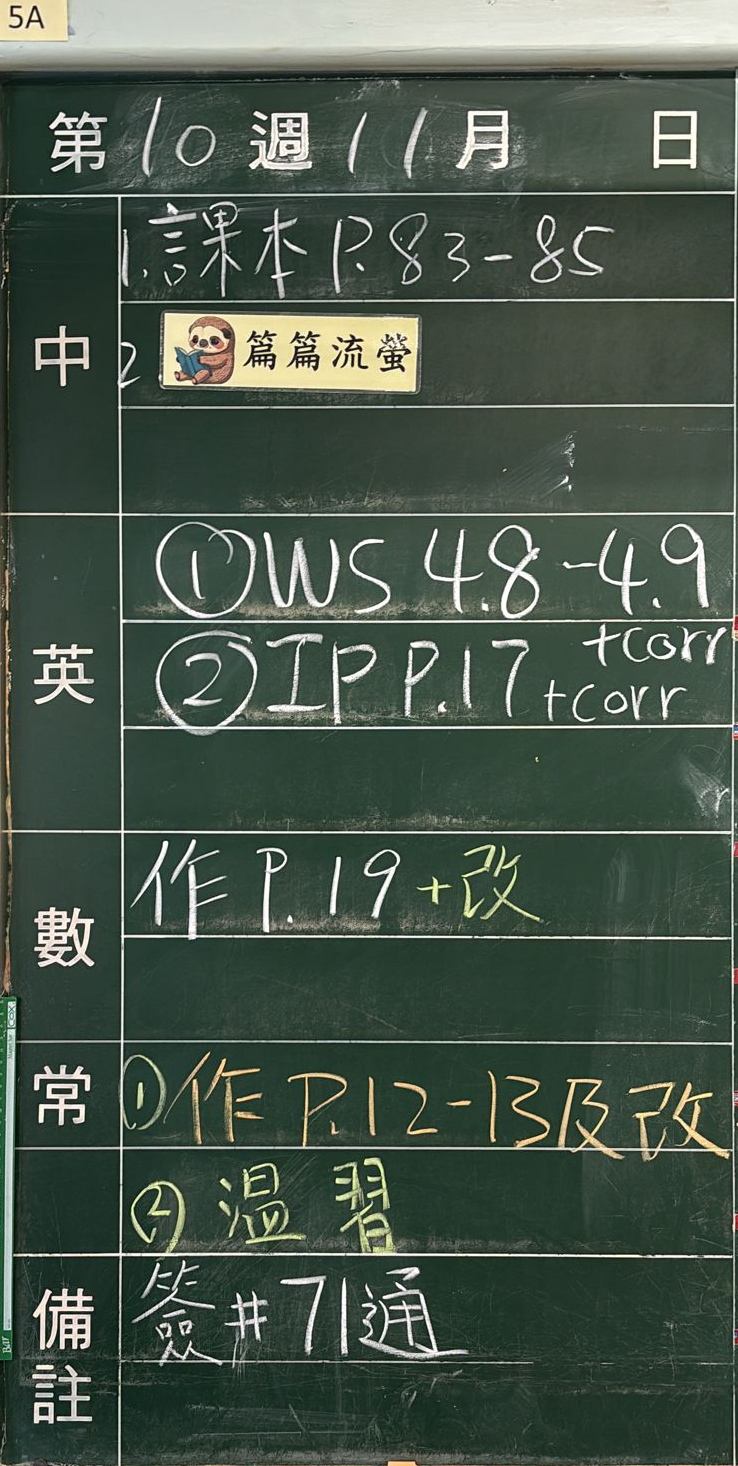 5A
第10週11月 日
中
1.課本 P.83-85
2 篇篇流螢
英
①WS 4.8-4.9 +corr
②IP P.17 +corr
數
作 P.19 +改
常
①作 P.12-13及改
② 温習
備註
簽#71通